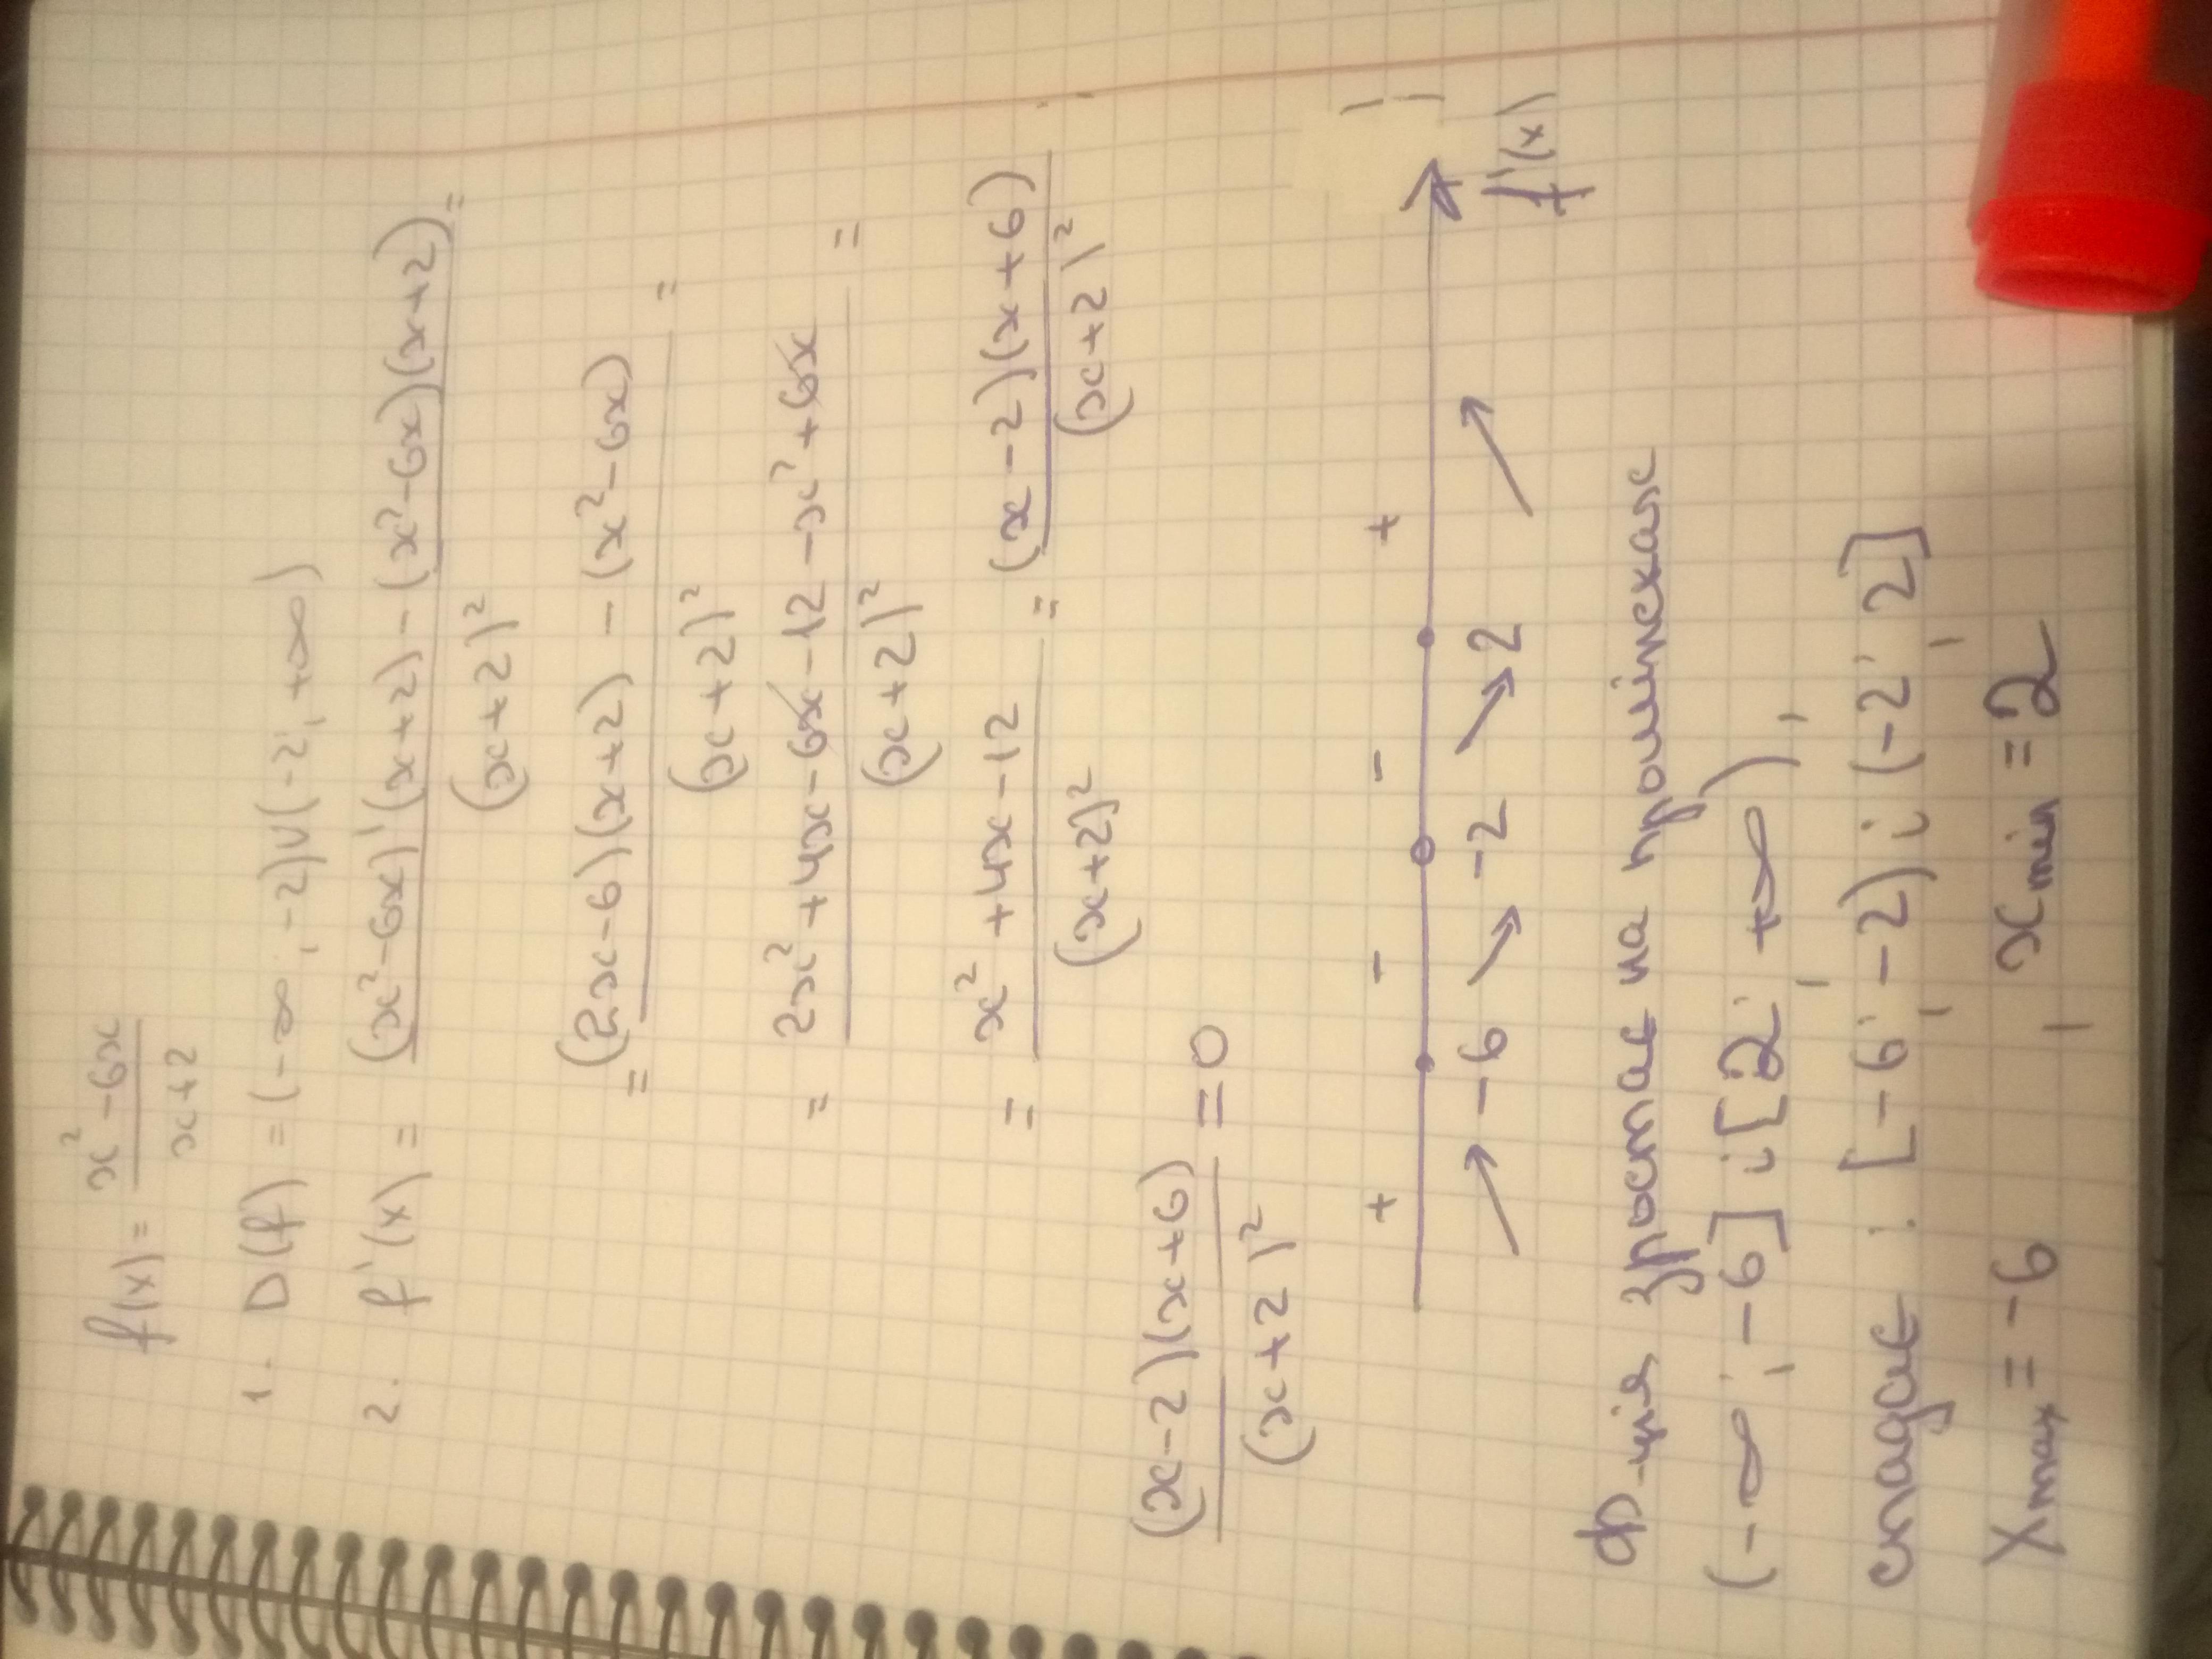 f(x) = (x² - 6x)/(x+2)
1. D(f) = (-∞; -2)∪(-2; +∞)
2. f'(x) = ((x²-6x)'(x+2) - (x²-6x)(x+2))/(x+2)² =
= ((2x-6)(x+2) - (x²-6x))/(x+2)² =
= (2x²+4x-6x-12-x²+6x)/(x+2)² =
= (x²+4x-12)/(x+2)² = ((x-2)(x+6))/(x+2)²
((x-2)(x+6))/(x+2)² = 0
+ - - +
↗ -6 ↘ -2 ↘ 2 ↗ f'(x)
Ф-ція зростає на проміжках
(-∞; -6] і [2; +∞),
спадає : [-6; -2) і (-2; 2]
Xmax = -6, xmin = 2